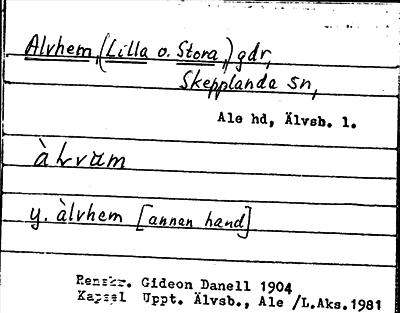 Alvhem, (Lilla o. Stora,) gdr,
Skepplanda sn,
Ale hd, Älvsb. l.
àlvəm
y. àlvhem [annan hand]
Renskr. Gideon Danell 1904
Kapsel Uppt. Älvsb., Ale /L.Aks.1981